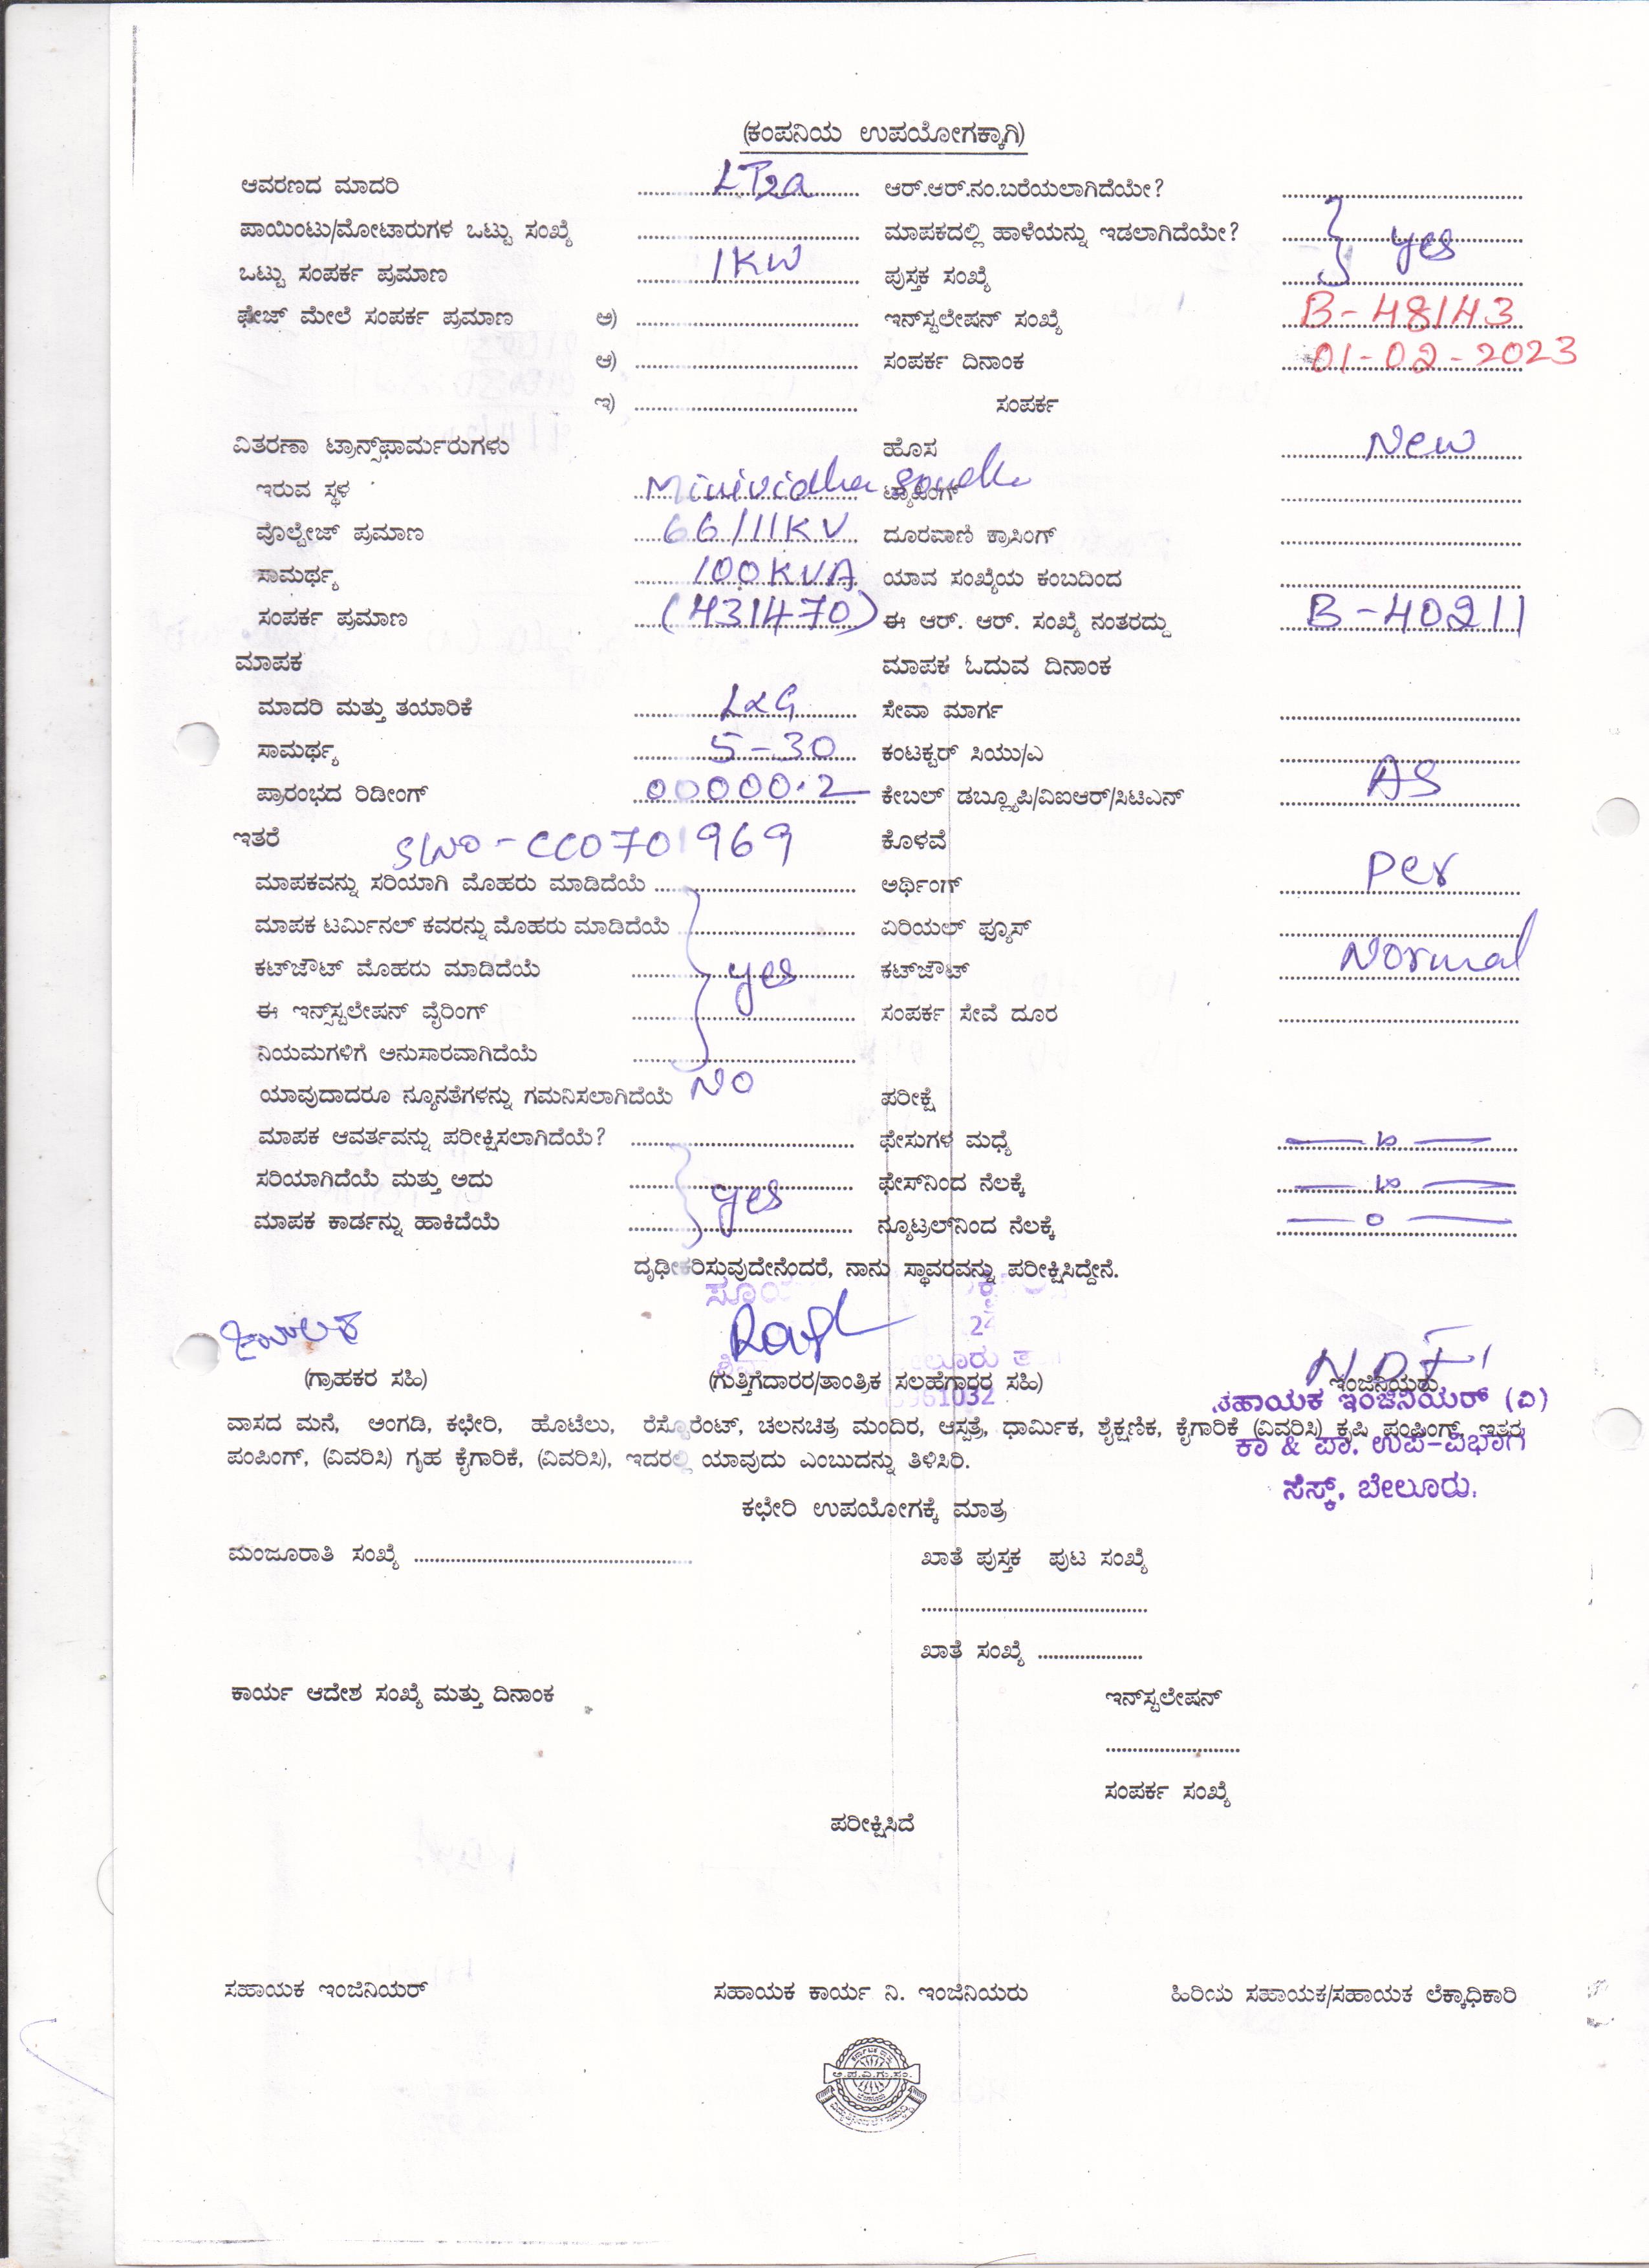 (ಕಂಪನಿಯ ಉಪಯೋಗಕ್ಕಾಗಿ)
ಆವರಣದ ಮಾದರಿ LT2a ಆರ್.ಆರ್.ನಂ.ಬರೆಯಲಾಗಿದೆಯೇ?
ಪಾಯಿಂಟು/ಮೋಟಾರುಗಳ ಒಟ್ಟು ಸಂಖ್ಯೆ ಮಾಪಕದಲ್ಲಿ ಹಾಳೆಯನ್ನು ಇಡಲಾಗಿದೆಯೇ? yes
ಒಟ್ಟು ಸಂಪರ್ಕ ಪ್ರಮಾಣ 1KW ಪುಸ್ತಕ ಸಂಖ್ಯೆ
ಫೇಜ್ ಮೇಲೆ ಸಂಪರ್ಕ ಪ್ರಮಾಣ ಅ) ಇನ್‌ಸ್ಟಲೇಷನ್ ಸಂಖ್ಯೆ B-48143
ಆ) ಸಂಪರ್ಕ ದಿನಾಂಕ 01-02-2023
ಇ) ಸಂಪರ್ಕ
ವಿತರಣಾ ಟ್ರಾನ್ಸ್‌ಫಾರ್ಮರುಗಳು ಹೊಸ New
ಇರುವ ಸ್ಥಳ Minividha Soudha ಟ್ಯಾಪಿಂಗ್
ವೊಲ್ಟೇಜ್ ಪ್ರಮಾಣ 66/11KV ದೂರವಾಣಿ ಕ್ರಾಸಿಂಗ್
ಸಾಮರ್ಥ್ಯ 100KVA ಯಾವ ಸಂಖ್ಯೆಯ ಕಂಬದಿಂದ
ಸಂಪರ್ಕ ಪ್ರಮಾಣ (431470) ಈ ಆರ್. ಆರ್. ಸಂಖ್ಯೆ ನಂತರದ್ದು B-40211
ಮಾಪಕ ಮಾಪಕ ಓದುವ ದಿನಾಂಕ
ಮಾದರಿ ಮತ್ತು ತಯಾರಿಕೆ L&G ಸೇವಾ ಮಾರ್ಗ
ಸಾಮರ್ಥ್ಯ 5-30 ಕಂಟಕ್ಟರ್ ಸಿಯು/ಎ
ಪ್ರಾರಂಭದ ರಿಡೀಂಗ್ 00000.2 ಕೇಬಲ್ ಡಬ್ಲ್ಯೂಪಿ/ವಿಐಆರ್/ಸಿಟಿಎನ್ AS
ಇತರೆ S/No - CC0701969 ಕೊಳವೆ
ಮಾಪಕವನ್ನು ಸರಿಯಾಗಿ ಮೊಹರು ಮಾಡಿದೆಯೆ ಅರ್ಥಿಂಗ್ Per
ಮಾಪಕ ಟರ್ಮಿನಲ್ ಕವರನ್ನು ಮೊಹರು ಮಾಡಿದೆಯೆ ಏರಿಯಲ್ ಫ್ಯೂಸ್
ಕಟ್‌ಔಟ್ ಮೊಹರು ಮಾಡಿದೆಯೆ yes ಕಟ್‌ಔಟ್ Normal
ಈ ಇನ್ಸ್‌ಸ್ಟಲೇಷನ್ ವೈರಿಂಗ್ ಸಂಪರ್ಕ ಸೇವೆ ದೂರ
ನಿಯಮಗಳಿಗೆ ಅನುಸಾರವಾಗಿದೆಯೆ
ಯಾವುದಾದರೂ ನ್ಯೂನತೆಗಳನ್ನು ಗಮನಿಸಲಾಗಿದೆಯೆ NO ಪರೀಕ್ಷೆ
ಮಾಪಕ ಆವರ್ತವನ್ನು ಪರೀಕ್ಷಿಸಲಾಗಿದೆಯೆ? ಫೇಸುಗಳ ಮಧ್ಯೆ
ಸರಿಯಾಗಿದೆಯೆ ಮತ್ತು ಅದು yes ಫೇಸ್‌ನಿಂದ ನೆಲಕ್ಕೆ
ಮಾಪಕ ಕಾರ್ಡನ್ನು ಹಾಕಿದೆಯೆ ನ್ಯೂಟ್ರಲ್‌ನಿಂದ ನೆಲಕ್ಕೆ — 0 —
ದೃಢೀಕರಿಸುವುದೇನೆಂದರೆ, ನಾನು ಸ್ಥಾವರವನ್ನು ಪರೀಕ್ಷಿಸಿದ್ದೇನೆ.
(ಗ್ರಾಹಕರ ಸಹಿ) (ಗುತ್ತಿಗೆದಾರರ/ತಾಂತ್ರಿಕ ಸಲಹೆಗಾರರ ಸಹಿ) ಇಂಜಿನಿಯರು
ಸಹಾಯಕ ಇಂಜಿನಿಯರ್ (ವಿ)
ವಾಸದ ಮನೆ, ಅಂಗಡಿ, ಕಛೇರಿ, ಹೊಟೆಲು, ರೆಸ್ಟೊರೆಂಟ್, ಚಲನಚಿತ್ರ ಮಂದಿರ, ಆಸ್ಪತ್ರೆ, ಧಾರ್ಮಿಕ, ಶೈಕ್ಷಣಿಕ, ಕೈಗಾರಿಕೆ (ವಿವರಿಸಿ) ಕೃಷಿ ಪಂಪಿಂಗ್, ಇತರೆ
ಕಾ & ಪಾ. ಉಪ-ವಿಭಾಗ
ಪಂಪಿಂಗ್, (ವಿವರಿಸಿ) ಗೃಹ ಕೈಗಾರಿಕೆ, (ವಿವರಿಸಿ), ಇದರಲ್ಲಿ ಯಾವುದು ಎಂಬುದನ್ನು ತಿಳಿಸಿರಿ.
ಸೆಸ್ಕ್, ಬೇಲೂರು.
ಕಛೇರಿ ಉಪಯೋಗಕ್ಕೆ ಮಾತ್ರ
ಮಂಜೂರಾತಿ ಸಂಖ್ಯೆ ಖಾತೆ ಪುಸ್ತಕ ಪುಟ ಸಂಖ್ಯೆ
ಖಾತೆ ಸಂಖ್ಯೆ
ಕಾರ್ಯ ಆದೇಶ ಸಂಖ್ಯೆ ಮತ್ತು ದಿನಾಂಕ ಇನ್‌ಸ್ಟಲೇಷನ್
ಸಂಪರ್ಕ ಸಂಖ್ಯೆ
ಪರೀಕ್ಷಿಸಿದೆ
ಸಹಾಯಕ ಇಂಜಿನಿಯರ್ ಸಹಾಯಕ ಕಾರ್ಯ ನಿ. ಇಂಜಿನಿಯರು ಹಿರಿಯ ಸಹಾಯಕ/ಸಹಾಯಕ ಲೆಕ್ಕಾಧಿಕಾರಿ